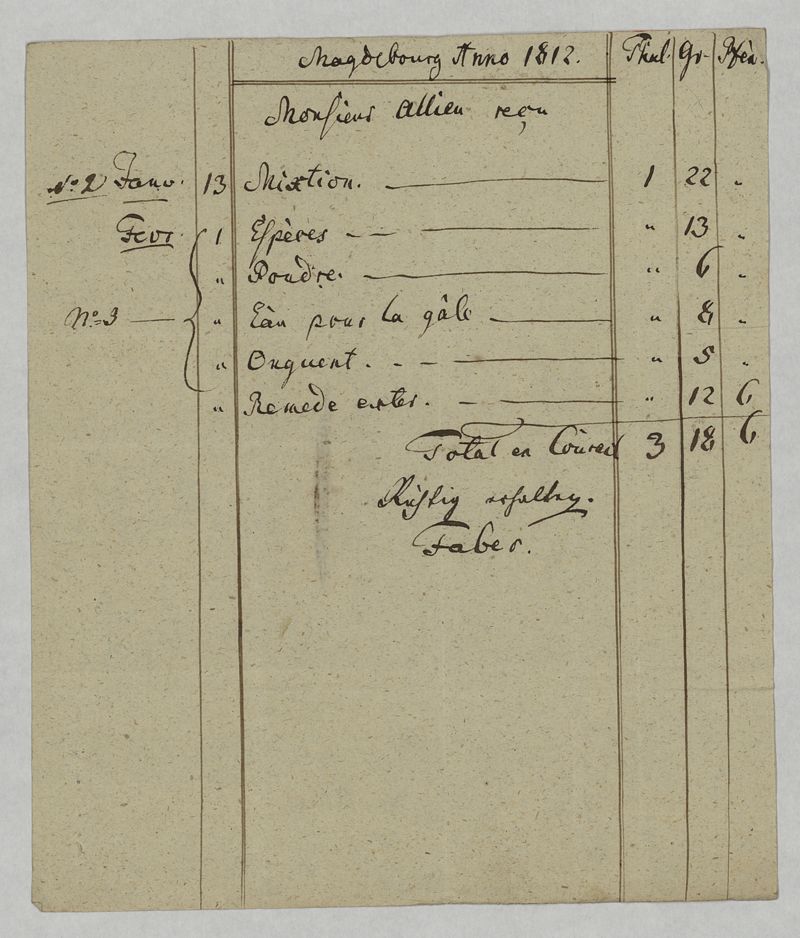 Magdebourg Anno 1812. Thal. Gr. Pfen.
Monsieur Allieu reçu
No 2 Janv. 13 Mixtion. — 1 22 "
Fevr 1 Espèces — " 13 "
" Poudre. — " 6 "
No 3 — " Eau pour la gâle — " 8 "
" Onguent. — " 5 "
" Remede exter. — " 12 6
Total en 3 18 6
Richtig erhalten.
Faber.